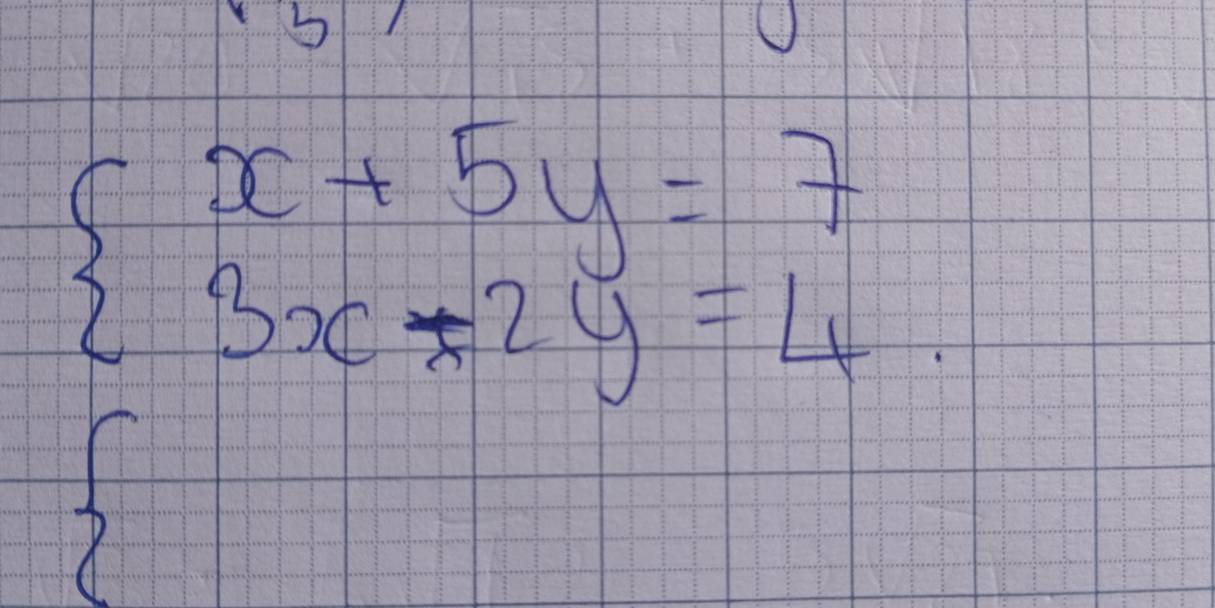 x + 5y = 7
3x - 2y = 4.